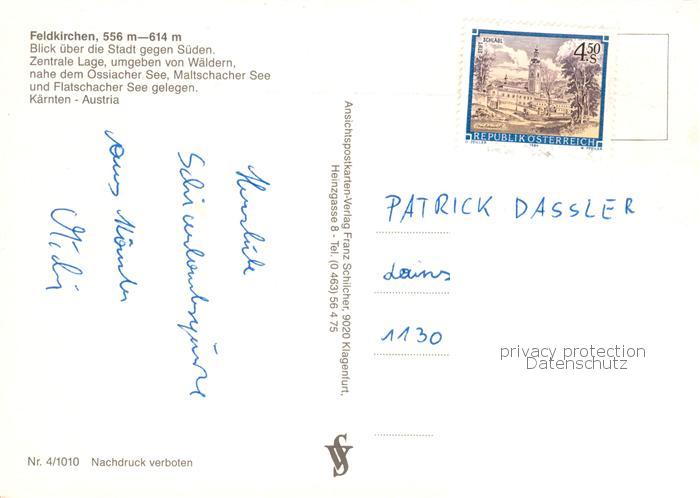 Feldkirchen, 556 m—614 m
Blick über die Stadt gegen Süden.
Zentrale Lage, umgeben von Wäldern,
nahe dem Ossiacher See, Maltschacher See
und Flatschacher See gelegen.
Kärnten - Austria
4.50 S
STIFT SCHLÄGL
REPUBLIK ÖSTERREICH
Ansichtspostkarten-Verlag Franz Schilcher, 9020 Klagenfurt,
Heinzgasse 8 - Tel. (0 463) 56 4 75
Herzliche
aus Kärnten
PATRICK DASSLER
1130
privacy protection
Datenschutz
Nr. 4/1010 Nachdruck verboten